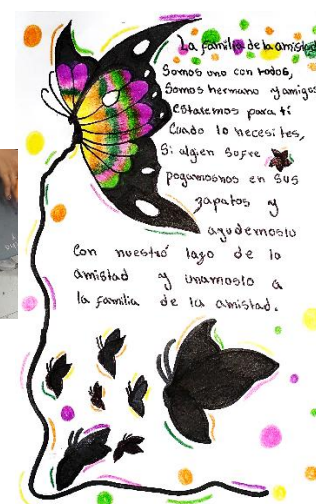 La familia de la amistad
Somos uno con todos,
Somos hermano y amigos
estaremos para tí
Cuado lo necesites,
Si algien sufre
pogamosnos en sus
zapatos y
ayudemoslo
Con nuestro lazo de la
amistad y unamoslo a
la familia de la amistad.